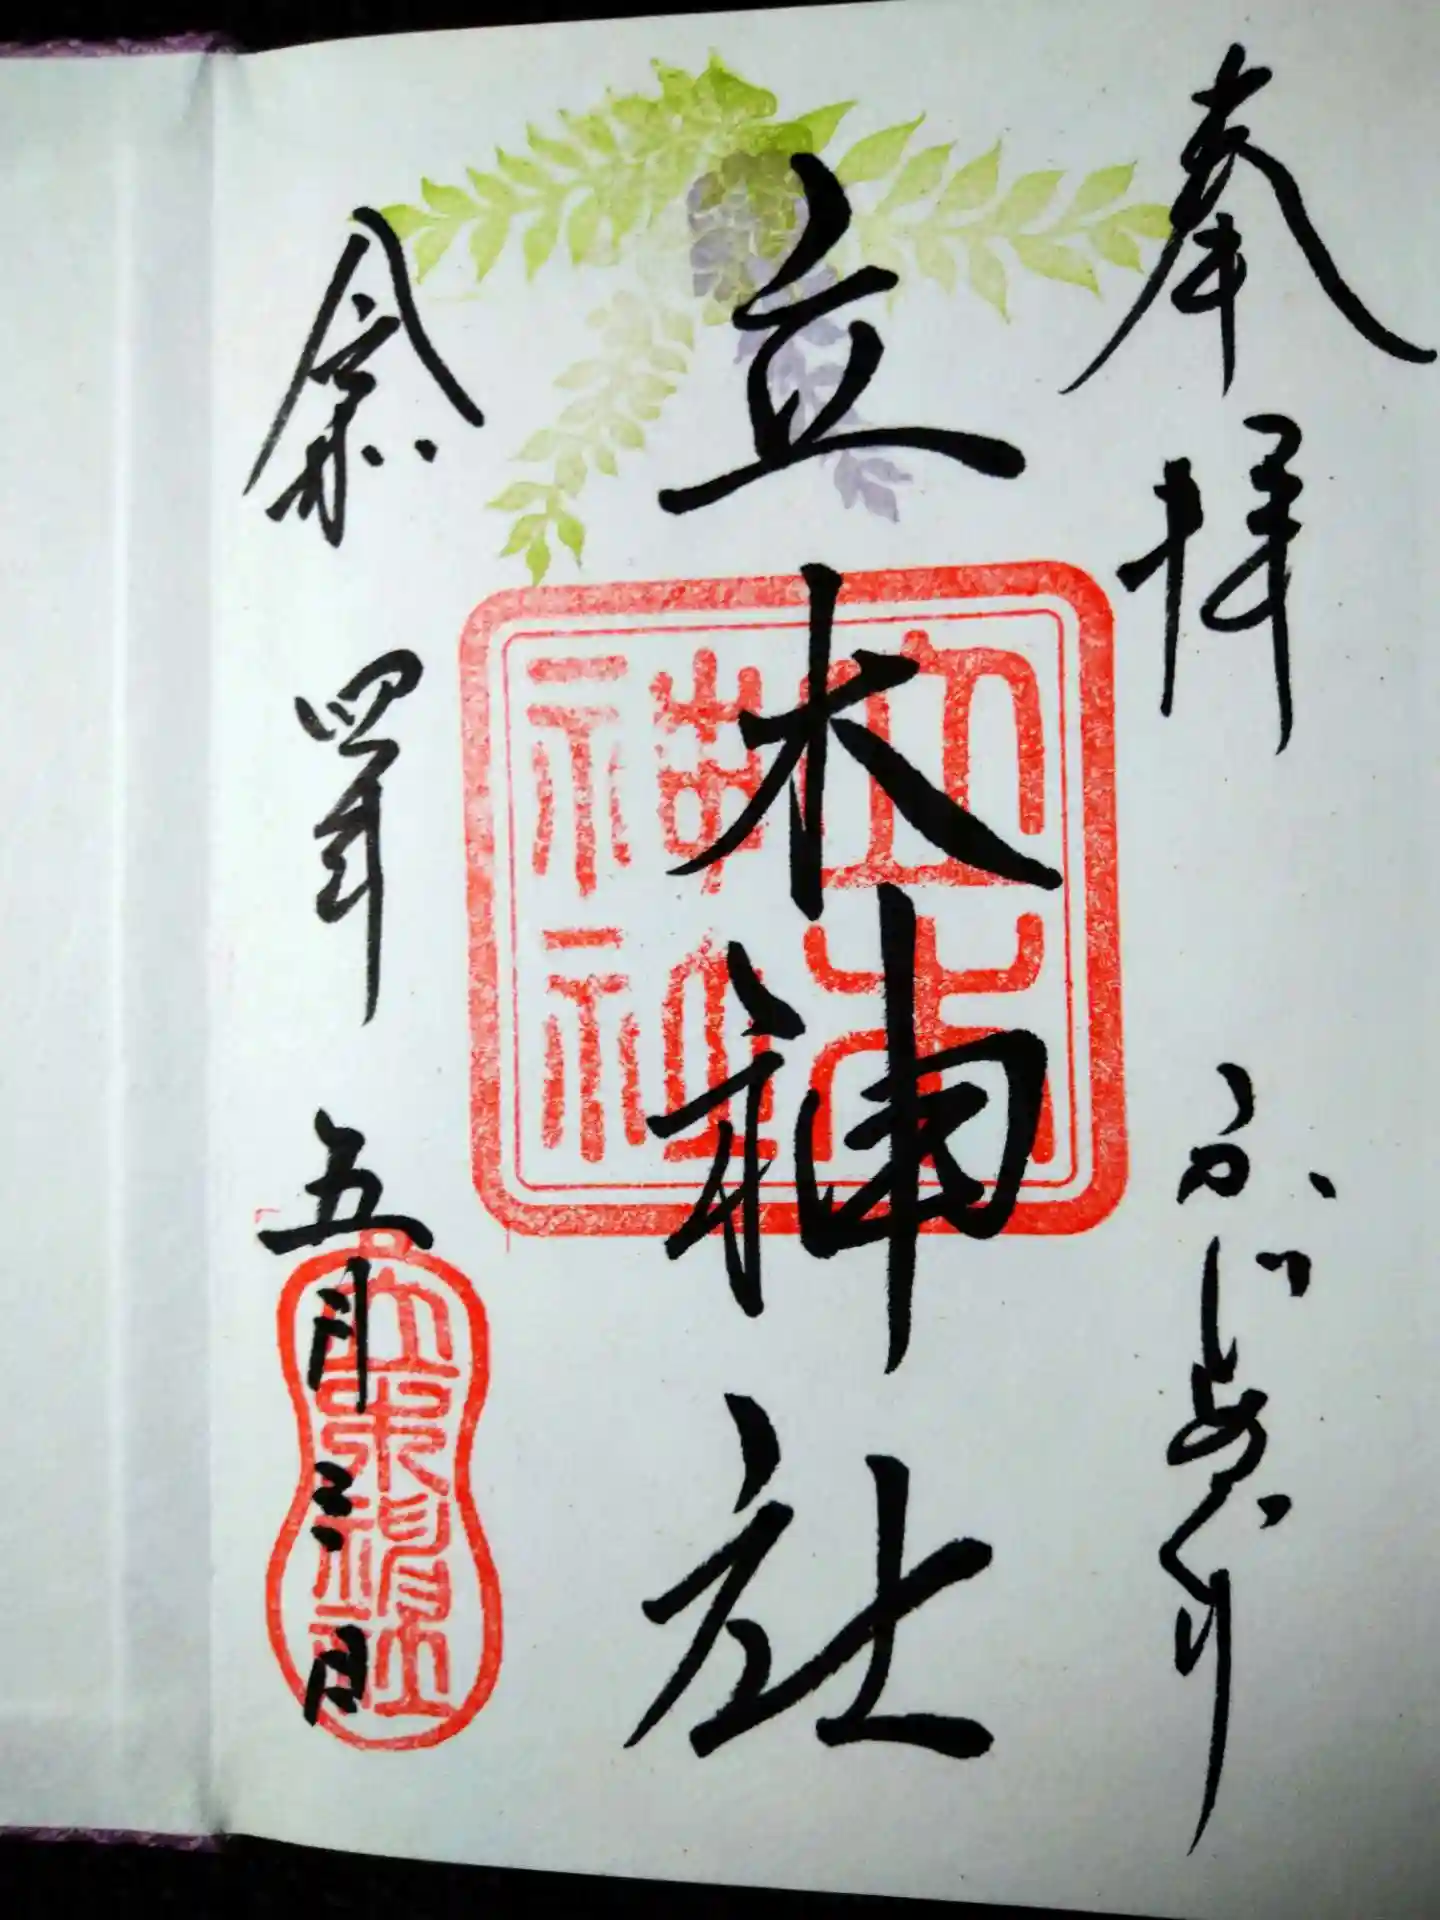 奉拝
立木神社
令和四年五月三日
立木神社
立木神社